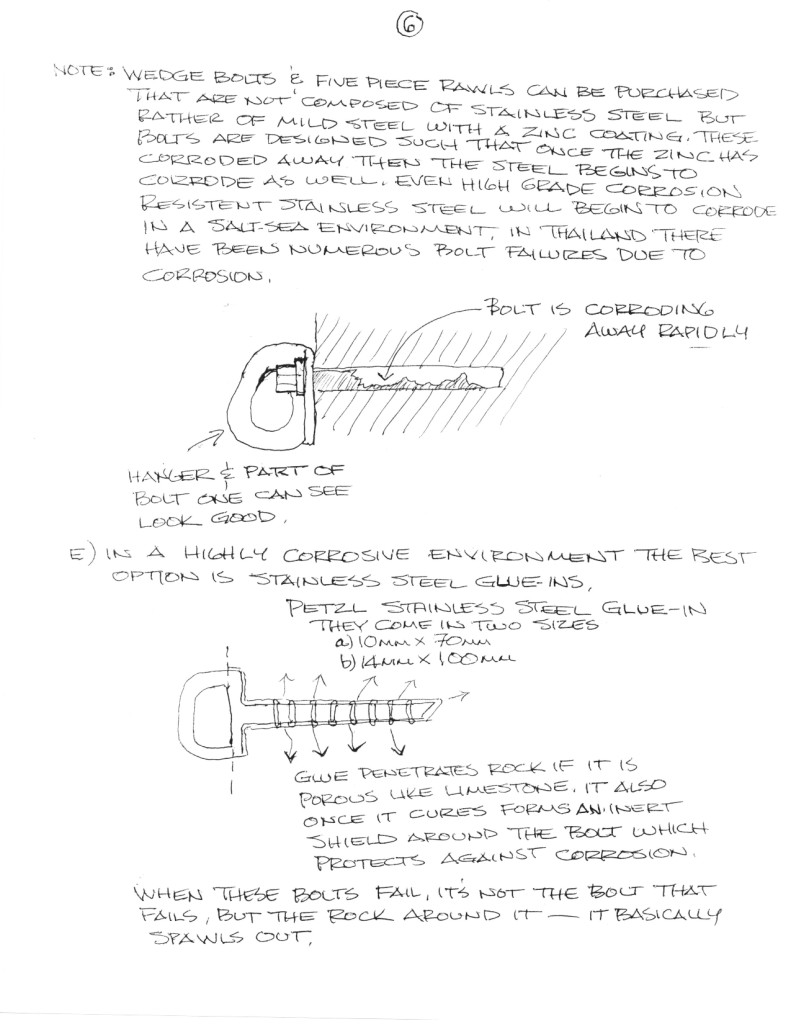 6
NOTE: WEDGE BOLTS & FIVE PIECE RAWLS CAN BE PURCHASED
THAT ARE NOT COMPOSED OF STAINLESS STEEL BUT
RATHER OF MILD STEEL WITH A ZINC COATING. THESE
BOLTS ARE DESIGNED SUCH THAT ONCE THE ZINC HAS
CORRODED AWAY THEN THE STEEL BEGINS TO
CORRODE AS WELL. EVEN HIGH GRADE CORROSION
RESISTENT STAINLESS STEEL WILL BEGIN TO CORRODE
IN A SALT-SEA ENVIRONMENT. IN THAILAND THERE
HAVE BEEN NUMEROUS BOLT FAILURES DUE TO
CORROSION.
BOLT IS CORRODING
AWAY RAPIDLY
HANGER & PART OF
BOLT ONE CAN SEE
LOOK GOOD.
E) IN A HIGHLY CORROSIVE ENVIRONMENT THE BEST
OPTION IS STAINLESS STEEL GLUE-INS.
PETZL STAINLESS STEEL GLUE-IN
THEY COME IN TWO SIZES
a) 10mm X 70mm
b) 14mm X 100mm
GLUE PENETRATES ROCK IF IT IS
POROUS LIKE LIMESTONE. IT ALSO
ONCE IT CURES FORMS AN INERT
SHIELD AROUND THE BOLT WHICH
PROTECTS AGAINST CORROSION.
WHEN THESE BOLTS FAIL, IT'S NOT THE BOLT THAT
FAILS, BUT THE ROCK AROUND IT — IT BASICALLY
SPAWLS OUT.